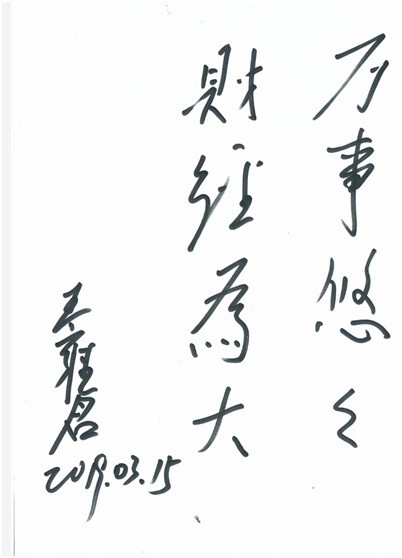 万事悠々
財經為大
王雍君
2019.03.15